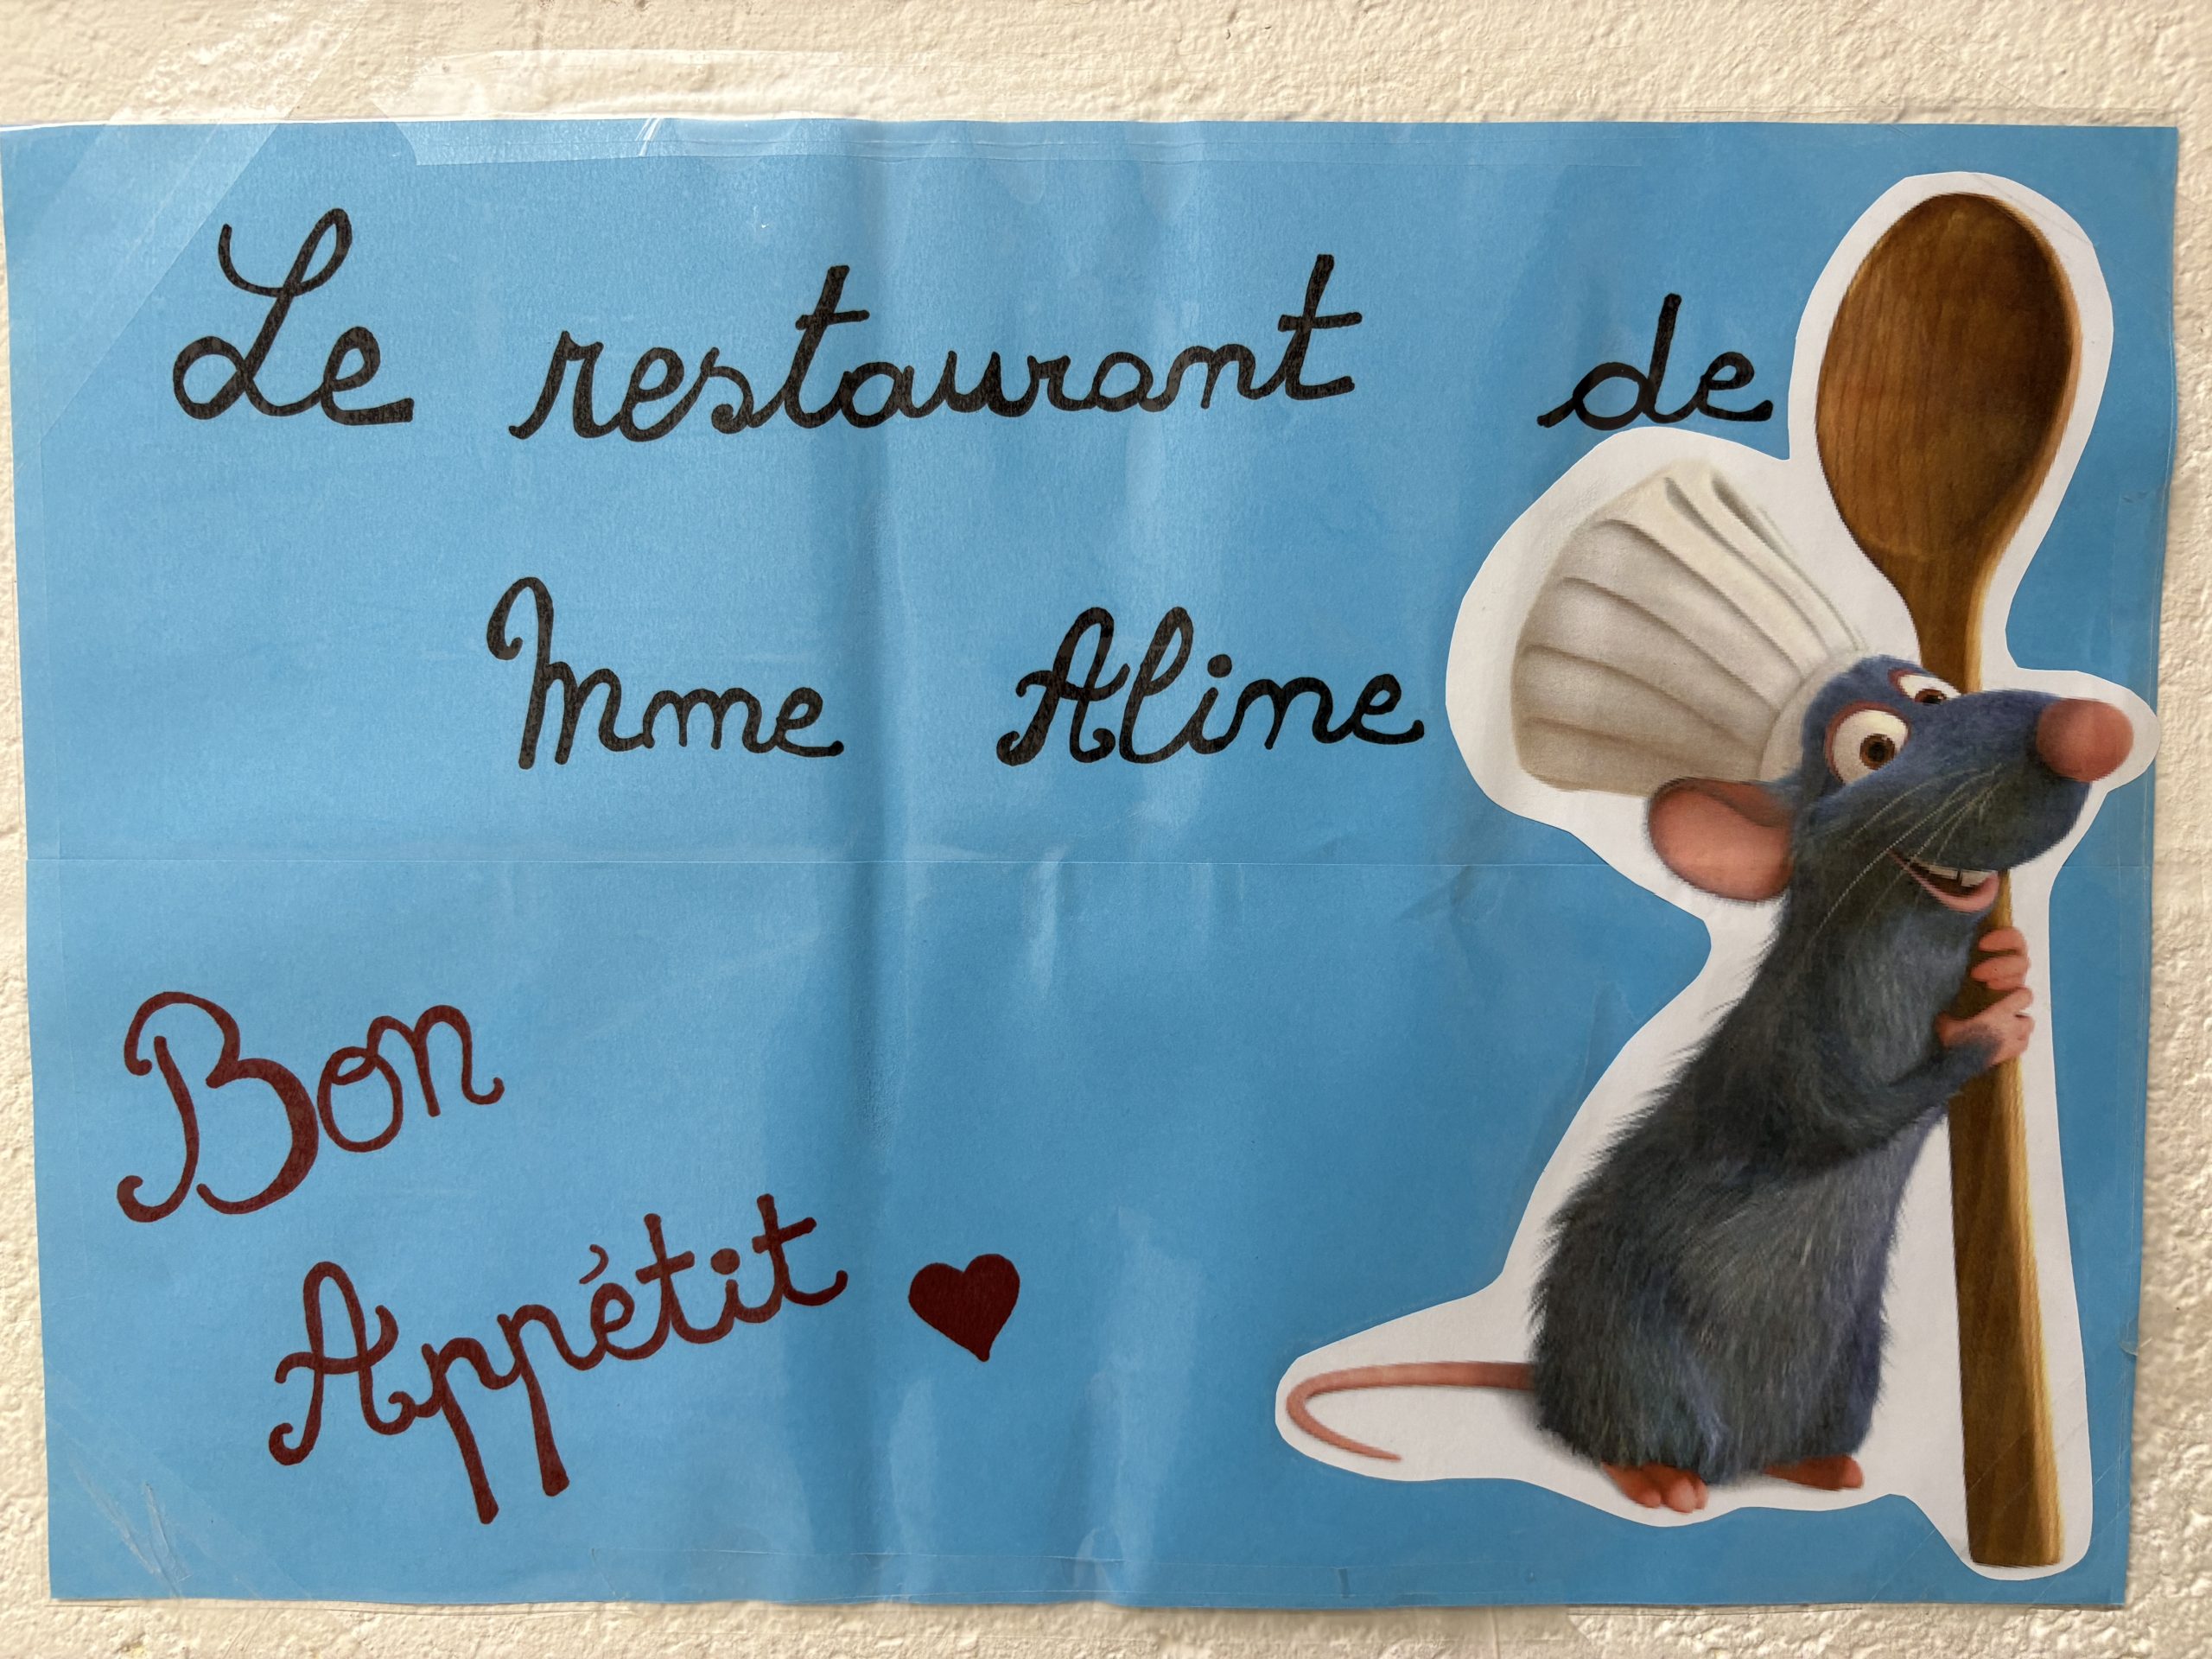 Le restaurant de
Mme Aline
Bon
Appétit